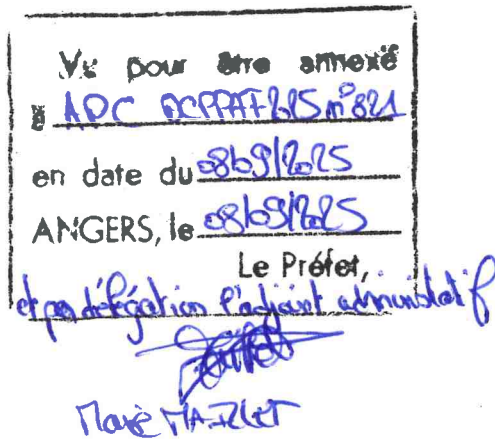 Vu pour être annexé
à APC DCPPAT 2025 n° 821
en date du 08/09/2025
ANGERS, le 08/09/2025
Le Préfet,
et par délégation l'adjoint administratif
Marie